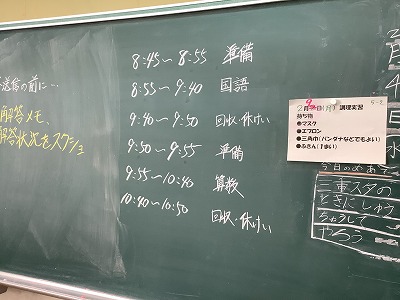 送信の前に…
解答メモ、
解答状況をスクショ
8:45〜8:55 準備
8:55〜9:40 国語
9:40〜9:50 回収・休けい
9:50〜9:55 準備
9:55〜10:40 算数
10:40〜10:50 回収・休けい
5-2
調理実習
持ち物
●マスク
●エプロン
●三角巾(バンダナなどでもよい)
●ふきん(1まい)
2
月
4
日
水
今日のめあて
三重スタの
ときにしゅう
ちゅうして
やろう